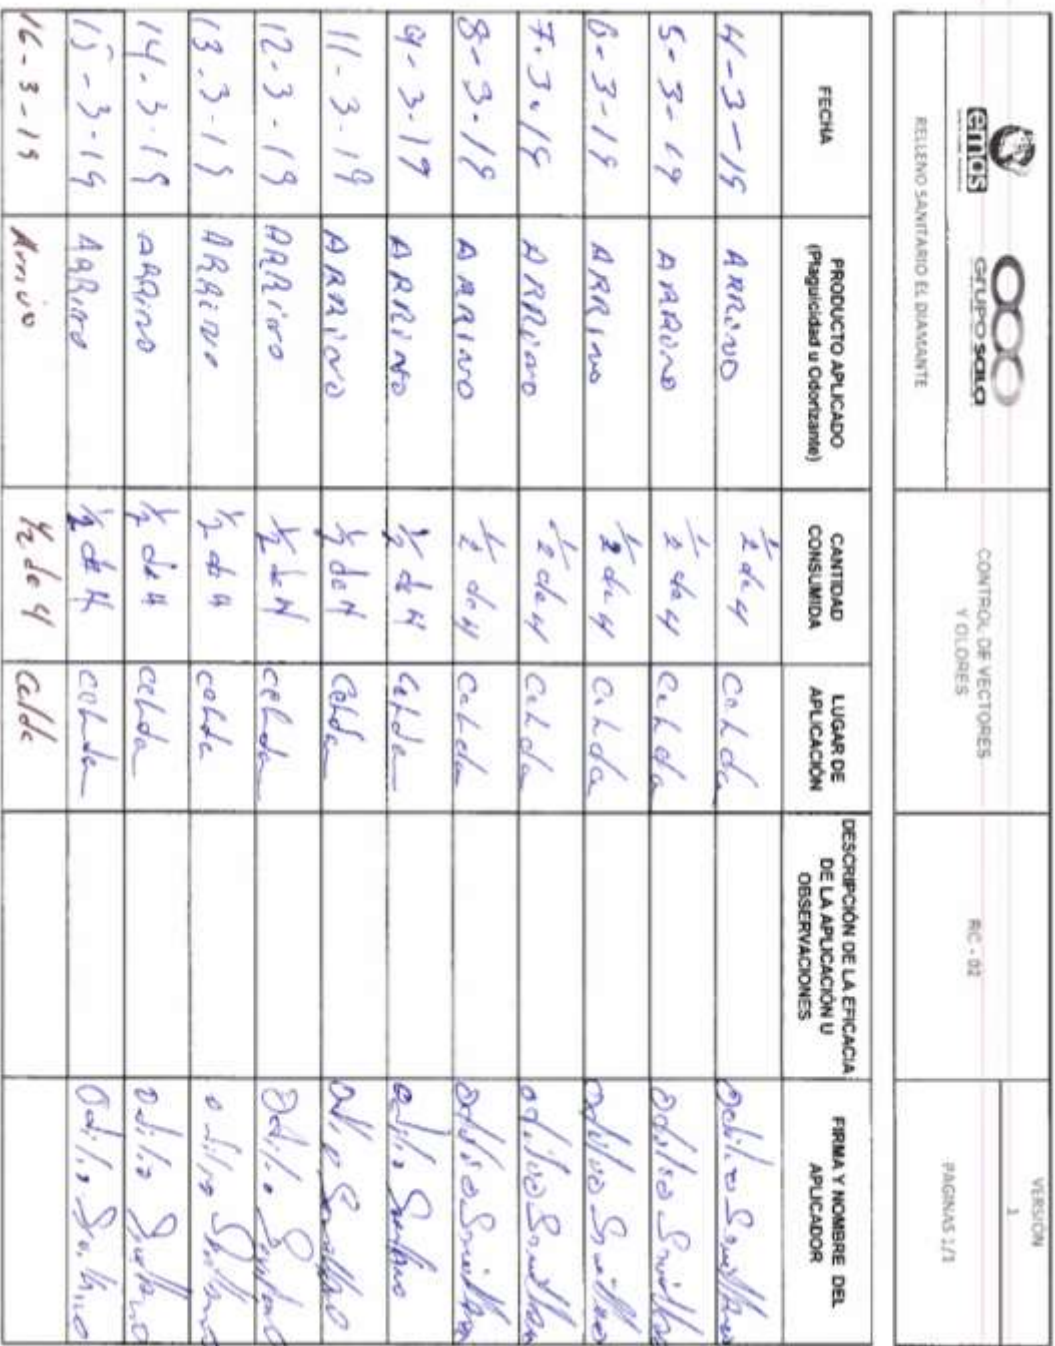 emas
GRUPO SALA
RELLENO SANITARIO EL DIAMANTE
CONTROL DE VECTORES
Y OLORES
RC - 02
VERSIÓN
1
PAGINAS 1/1
FECHA
PRODUCTO APLICADO
(Plaguicidad u Odorizante)
CANTIDAD
CONSUMIDA
LUGAR DE
APLICACIÓN
DESCRIPCIÓN DE LA EFICACIA
DE LA APLICACIÓN U
OBSERVACIONES
FIRMA Y NOMBRE DEL
APLICADOR
4-3-19 ARRivo 1/2 de 4 Celda
5-3-19 ARRivo 1/2 de 4 Celda Odilio
6-3-19 ARRIvo 1/2 de 4 Celda Odilio
7.3.19 ARRivo 1/2 de 4 Celda Odilio
8-3-19 ARRIVO 1/2 de 4 Celda Odilio
9-3-19 ARRivo 1/2 de 4 Celda Odilio
11-3-19 ARRivo 1/2 de 4 Celda Odilio
12-3-19 ARRivo 1/2 de 4 Celda Odilio
13.3-19 ARRivo 1/2 de 4 Celda Odilio
14.3.19 ARRivo 1/2 de 4 Celda Odilio
15-3-19 ARRivo 1/2 de 4 Celda Odilio
16-3-19 Arrivo 1/2 de 4 Celda